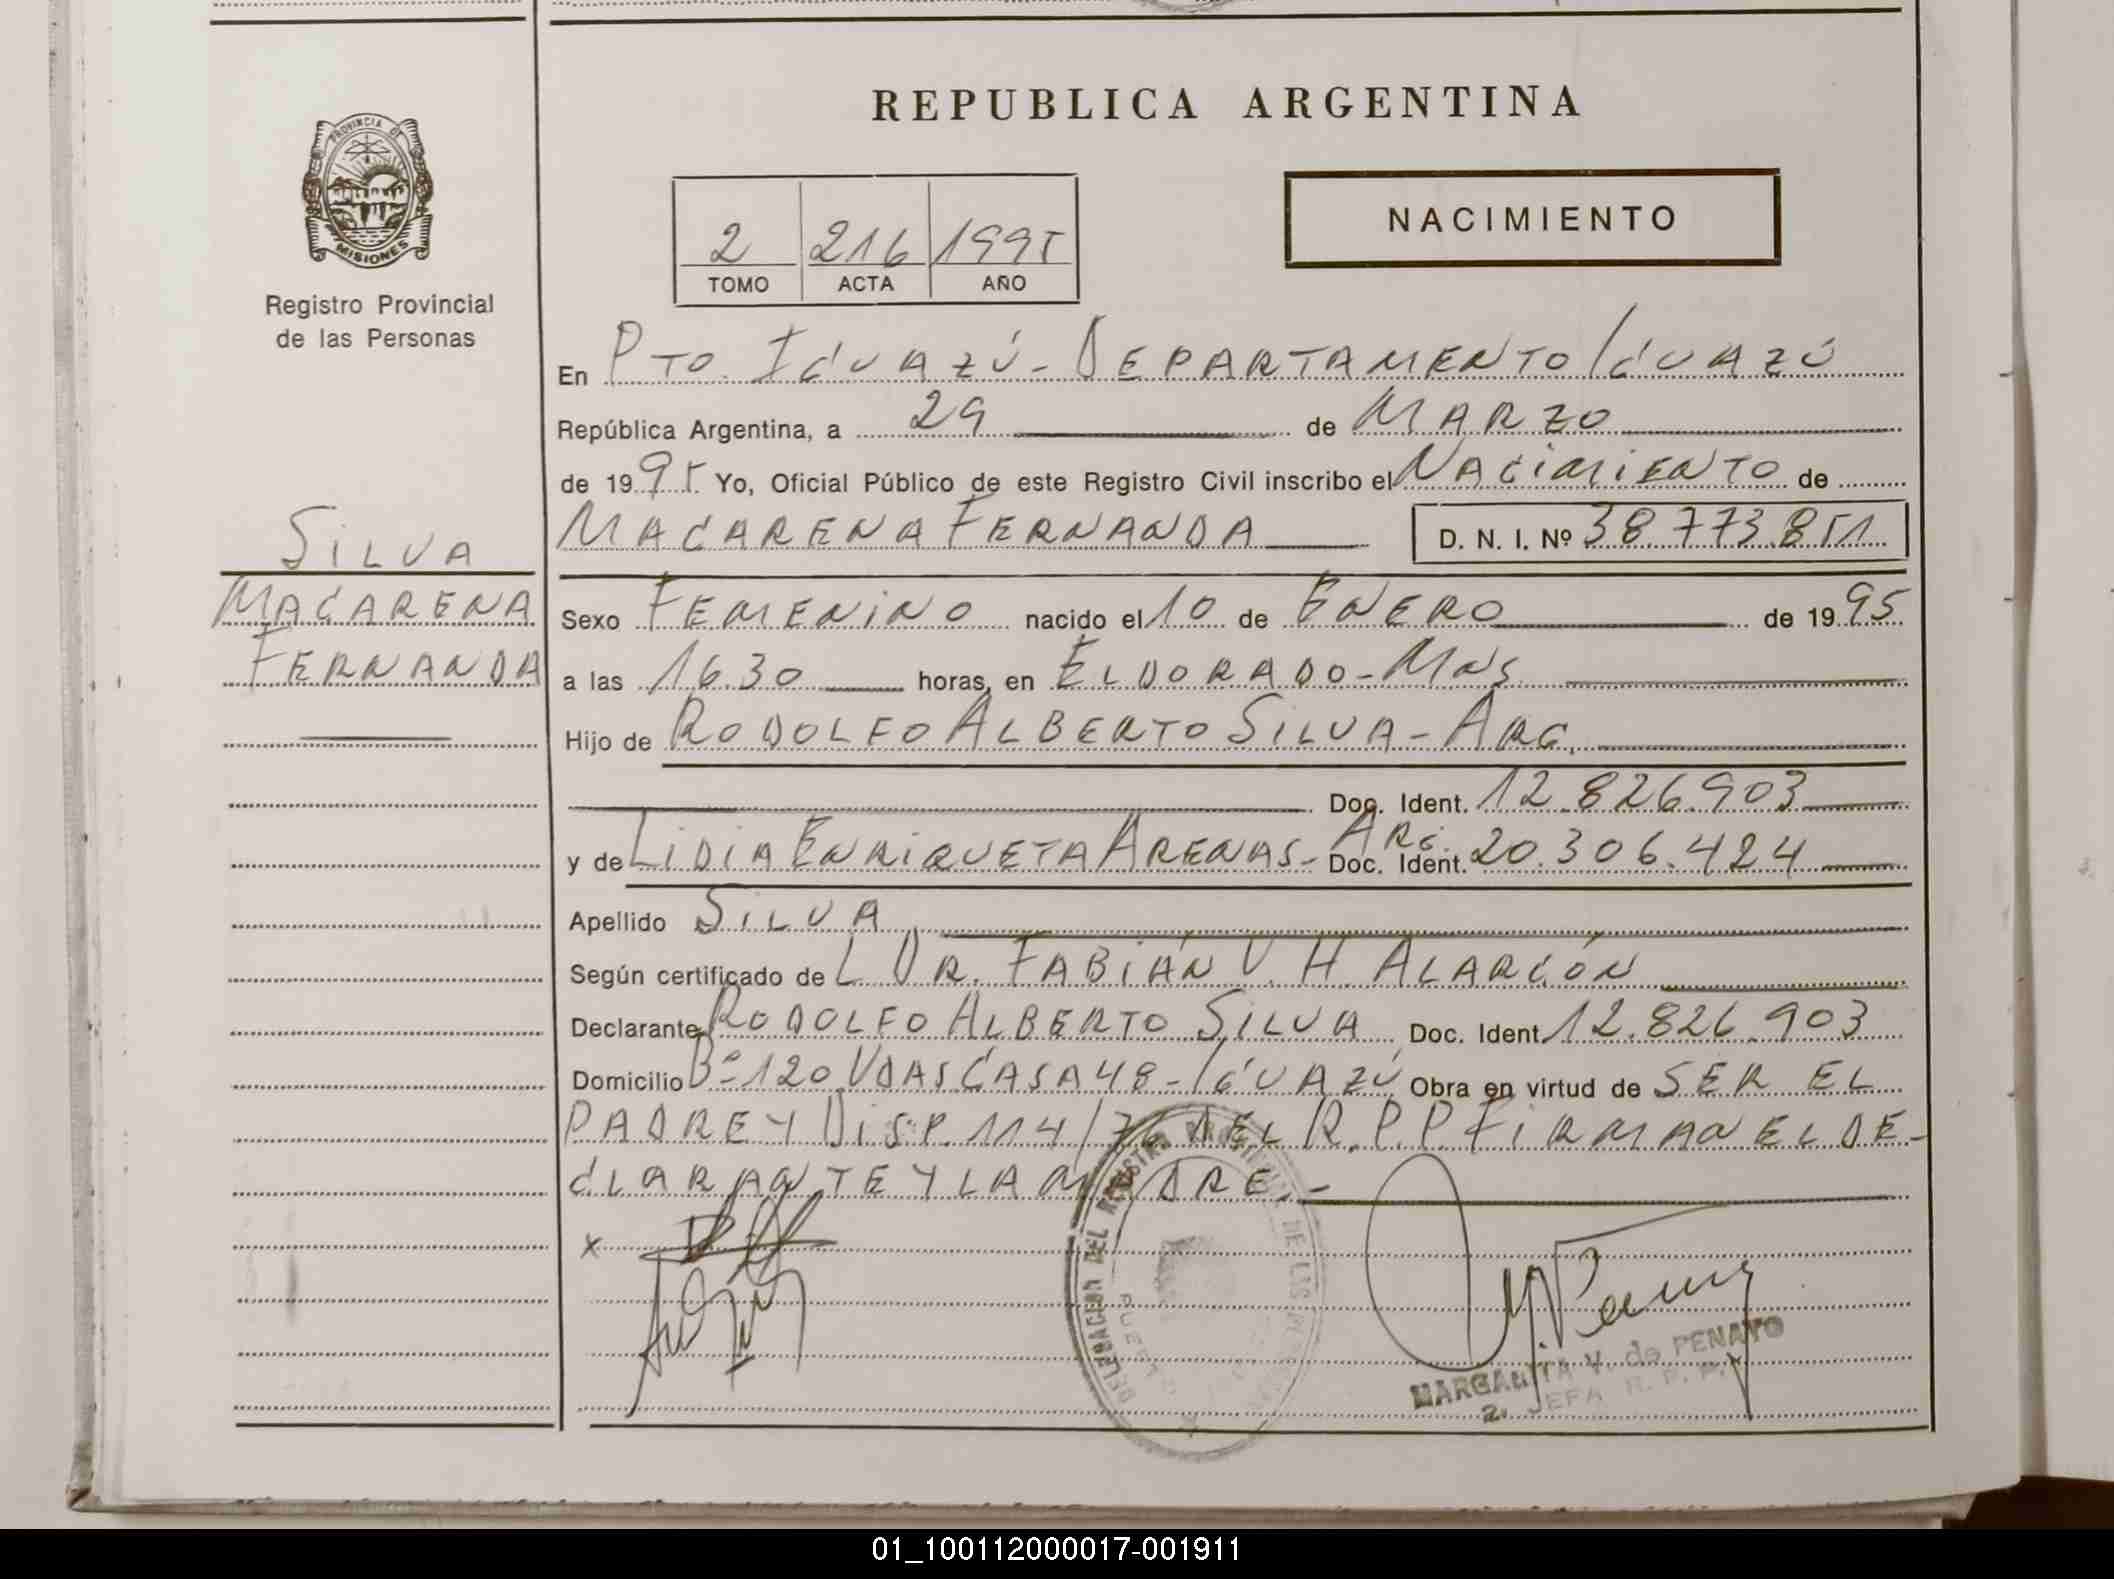 REPUBLICA ARGENTINA
PROVINCIA DE
MISIONES
Registro Provincial
de las Personas
NACIMIENTO
2 216 1995
TOMO ACTA AÑO
En PTO. IGUAZÚ - DEPARTAMENTO IGUAZÚ
República Argentina, a 29 de MARZO
de 1995 Yo, Oficial Público de este Registro Civil inscribo el NACIMIENTO de
SILVA
MACARENA FERNANDA D. N. I. Nº 38.773.851
MACARENA
FERNANDA
Sexo FEMENINO nacido el 10 de ENERO de 1995
a las 16.30 horas, en ELDORADO - MNS
Hijo de RODOLFO ALBERTO SILVA - ARG.
Doc. Ident. 12.826.903
y de LIDIA ENRIQUETA ARENAS - ARG. Doc. Ident. 20.306.424
Apellido SILVA
Según certificado de L DR. FABIÁN V. H. ALARCÓN
Declarante RODOLFO ALBERTO SILVA Doc. Ident. 12.826.903
Domicilio Bº 120 VDAS CASA 48 - IGUAZÚ Obra en virtud de SER EL
PADRE Y DISP. 114/76 DEL R.P.P. FIRMAN EL DE-
CLARANTE Y LA MADRE.-
X
DELEGACION DEL REGISTRO PROVINCIAL DE LAS PERSONAS
MARGARITA V. de PENAYO
2. JEFA R. P. P.
01_100112000017-001911